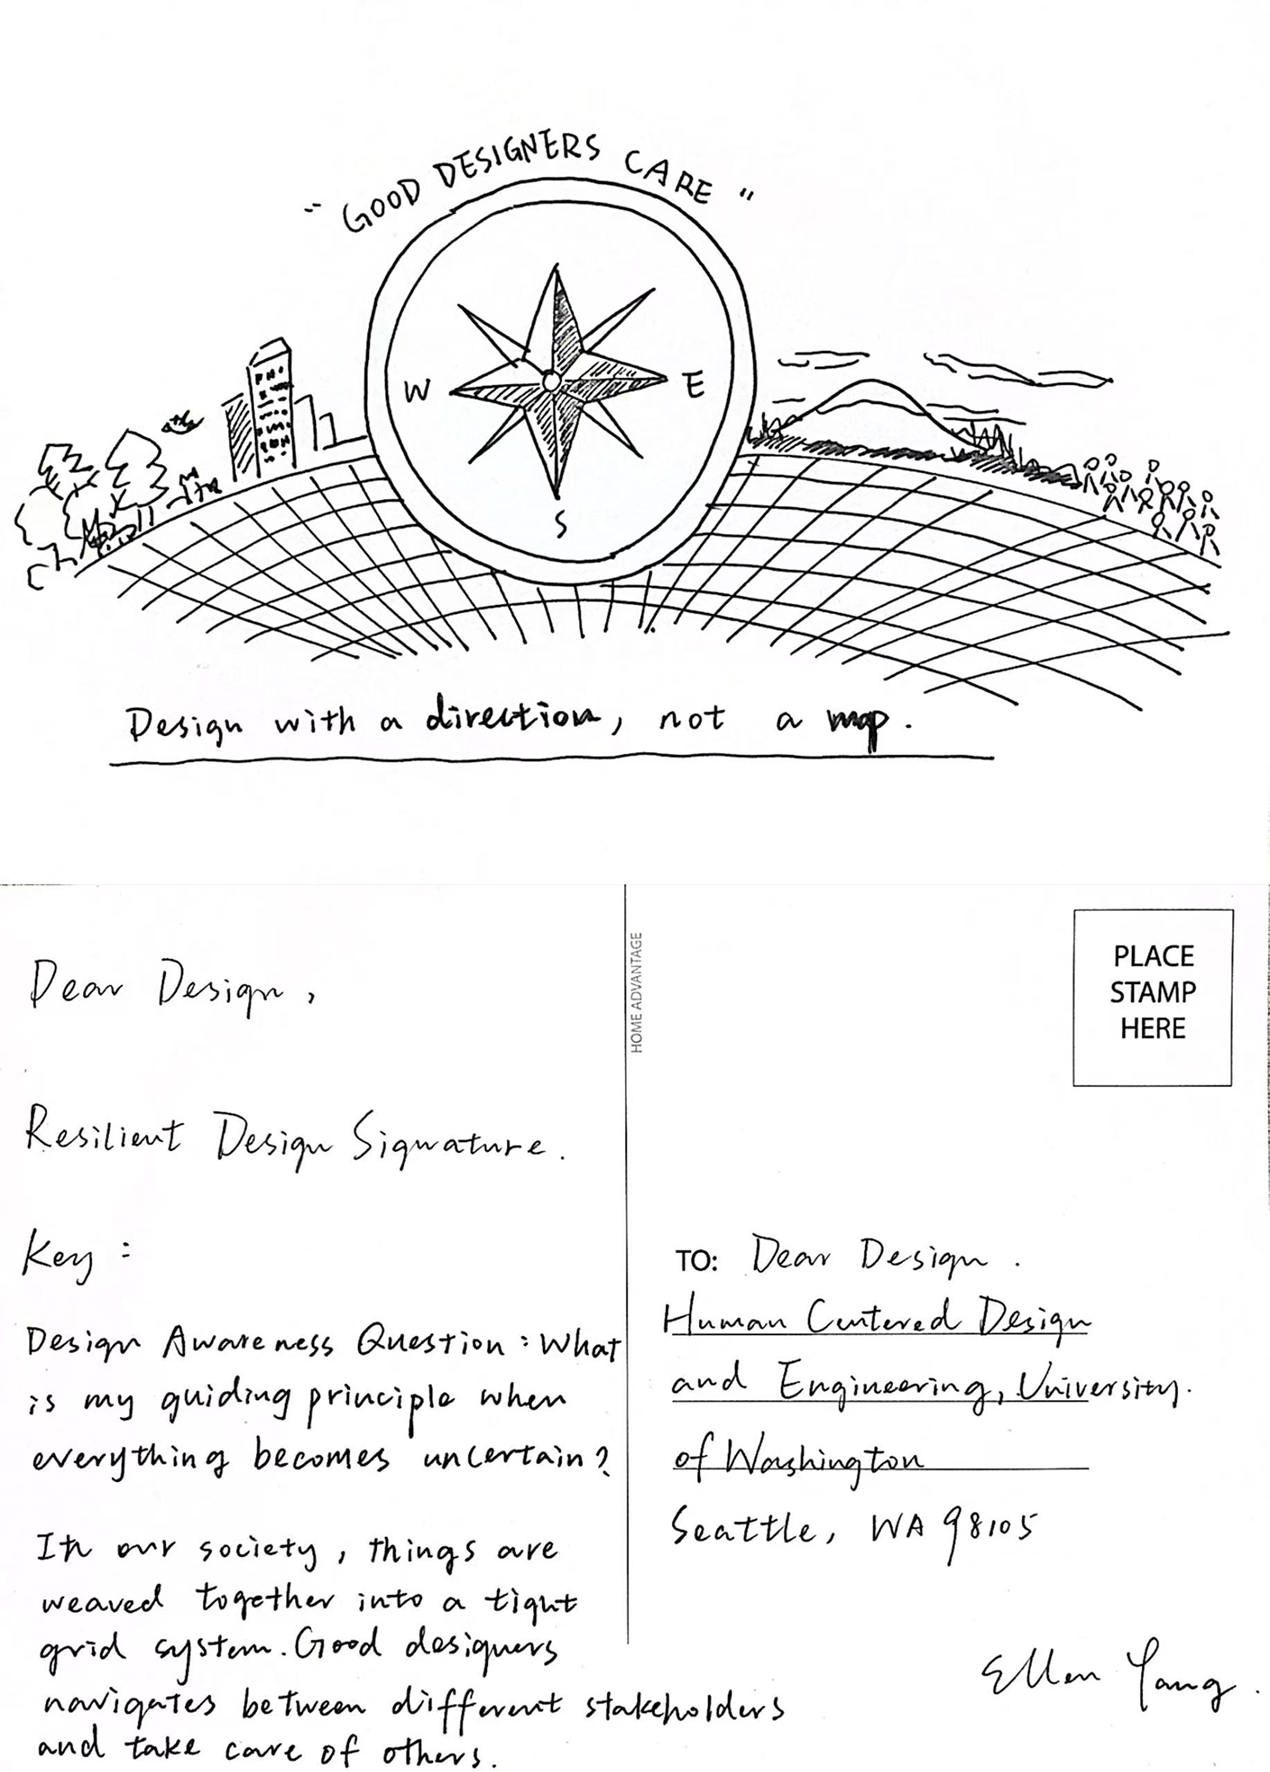 "GOOD DESIGNERS CARE"
W
E
S
Design with a direction, not a map.
Dear Design,
Resilient Design Signature.
Key:
Design Awareness Question: What
is my guiding principle when
everything becomes uncertain?
In our society, things are
weaved together into a tight
grid system. Good designers
navigates between different stakeholders
and take care of others.
HOME ADVANTAGE
PLACE
STAMP
HERE
TO: Dear Design.
Human Centered Design
and Engineering, University.
of Washington
Seattle, WA 98105
Ellen Yang.